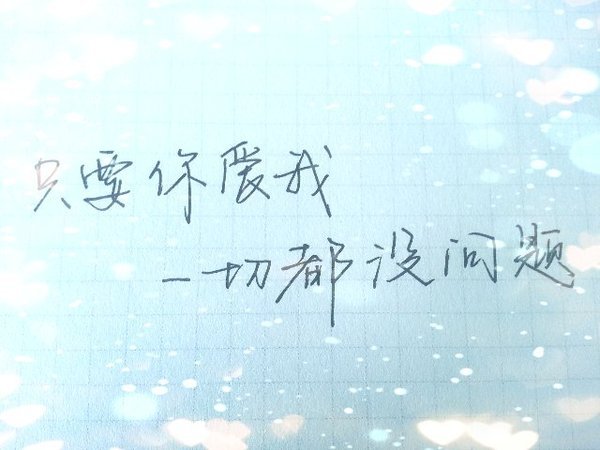 只要你爱我
一切都没问题